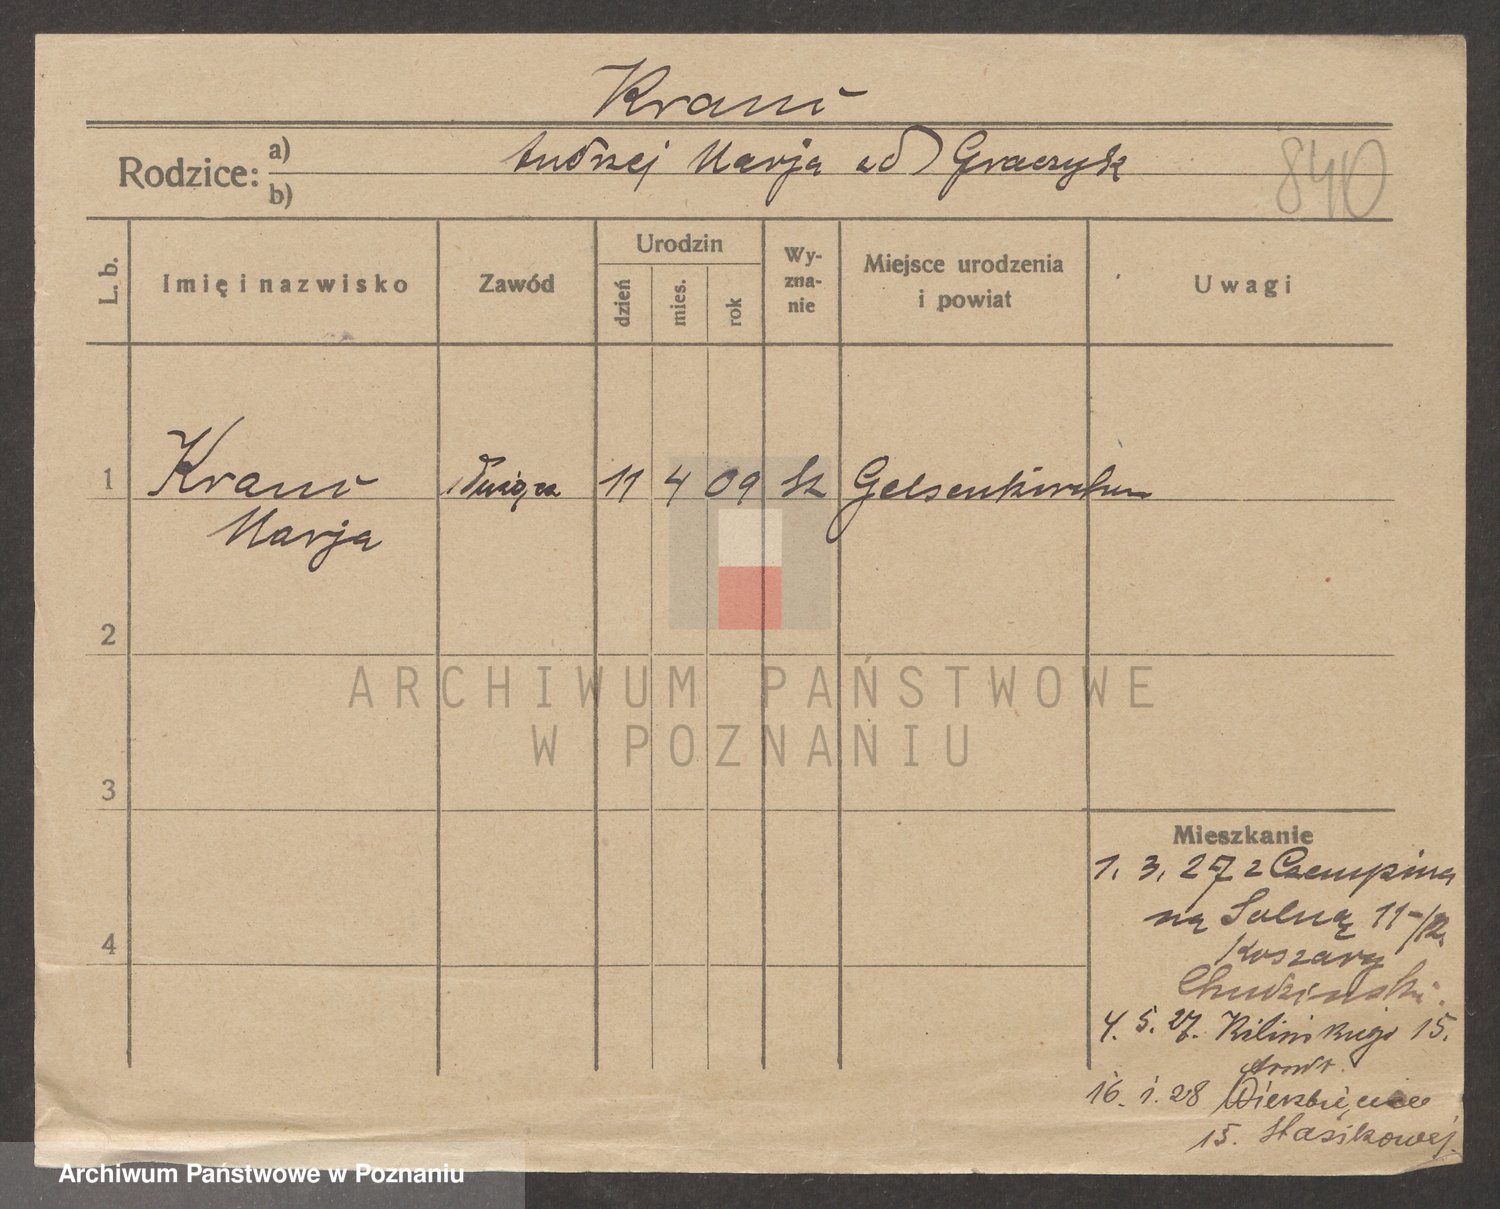 Krauś
Rodzice: a) b)
Andrzej Marja od Graczyk
840
L. b.
Imię i nazwisko
Zawód
Urodzin
dzień
mies.
rok
Wy-
zna-
nie
Miejsce urodzenia
i powiat
Uwagi
1
Krauś
służąca
11 4 09
Gelsenkirchen
Marja
2
ARCHIWUM PAŃSTWOWE
W POZNANIU
3
Mieszkanie
1. 3. 27 z Czempina
na Solną 11
4
Koszary
Chudziński.
4. 5. 27. Kilińskiego 15.
16. 1. 28 Wierzbięcice
15. Stasikowej.
Archiwum Państwowe w Poznaniu